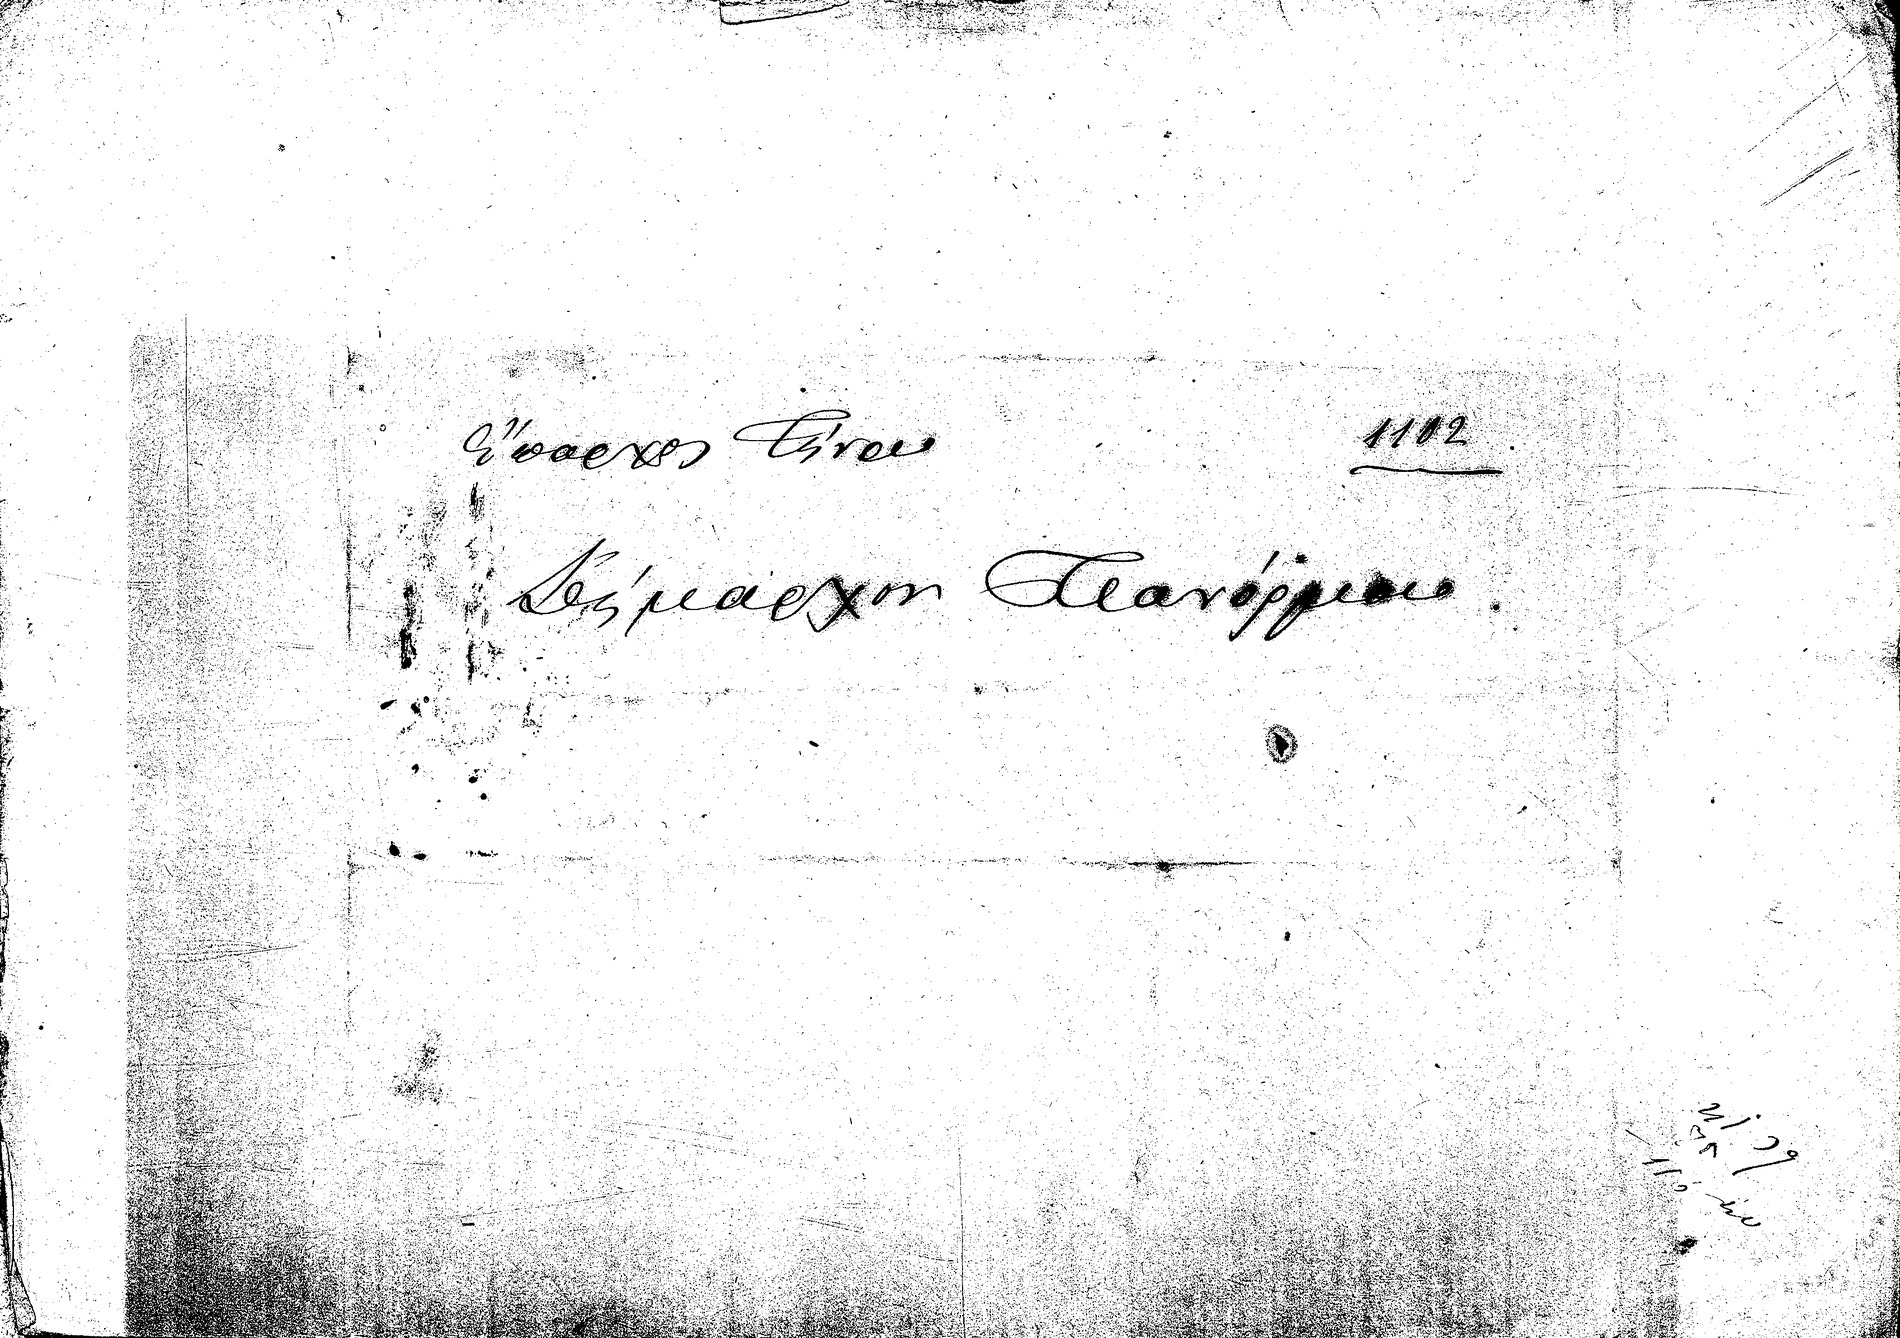 Ἔπαρχος Τήνου 1102
Δήμαρχον Πανόρμου.